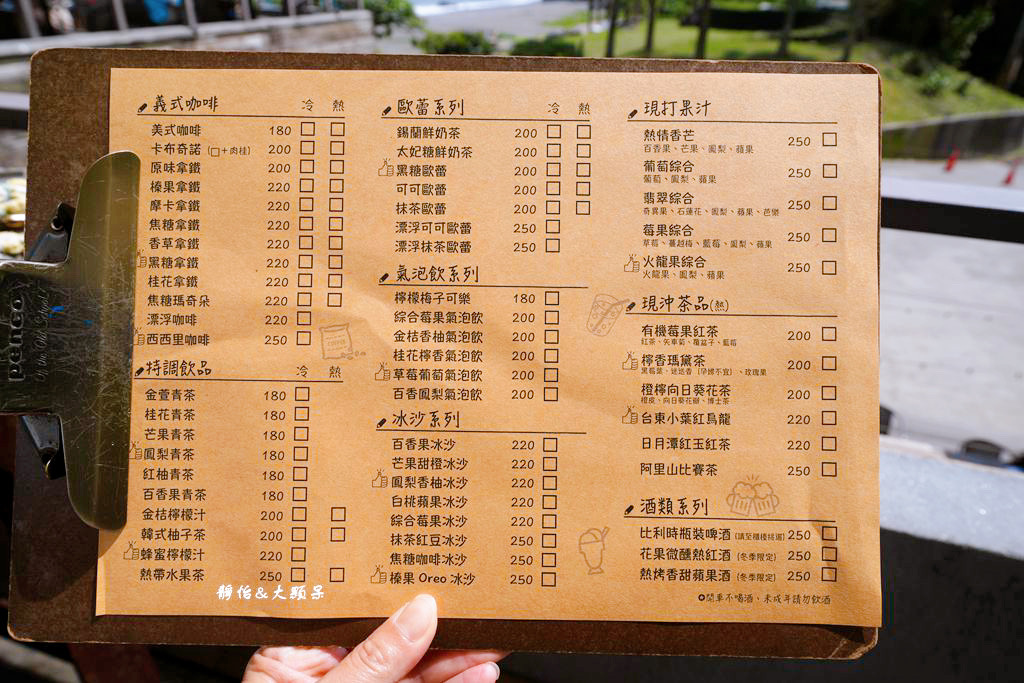 義式咖啡 冷 熱
美式咖啡 180 □ □
卡布奇諾 (□+肉桂) 200 □ □
原味拿鐵 200 □ □
榛果拿鐵 220 □ □
摩卡拿鐵 220 □ □
焦糖拿鐵 220 □ □
香草拿鐵 220 □ □
黑糖拿鐵 220 □ □
桂花拿鐵 220 □ □
焦糖瑪奇朵 220 □ □
漂浮咖啡 220 □
西西里咖啡 250 □
特調飲品 冷 熱
金萱青茶 180 □
桂花青茶 180 □
芒果青茶 180 □
鳳梨青茶 180 □
紅柚青茶 180 □
百香果青茶 180 □
金桔檸檬汁 200 □ □
韓式柚子茶 200 □ □
蜂蜜檸檬汁 220 □
熱帶水果茶 250 □ □
歐蕾系列 冷 熱
錫蘭鮮奶茶 200 □ □
太妃糖鮮奶茶 200 □ □
黑糖歐蕾 200 □ □
可可歐蕾 200 □ □
抹茶歐蕾 200 □ □
漂浮可可歐蕾 250 □
漂浮抹茶歐蕾 250 □
氣泡飲系列
檸檬梅子可樂 180 □
綜合莓果氣泡飲 200 □
金桔香柚氣泡飲 200 □
桂花檸香氣泡飲 200 □
草莓葡萄氣泡飲 200 □
百香鳳梨氣泡飲 200 □
冰沙系列
百香果冰沙 220 □
芒果甜橙冰沙 220 □
鳳梨香柚冰沙 220 □
白桃蘋果冰沙 220 □
綜合莓果冰沙 220 □
抹茶紅豆冰沙 250 □
焦糖咖啡冰沙 250 □
榛果 Oreo 冰沙 250 □
現打果汁
熱情香芒 250 □
百香果、芒果、鳳梨、蘋果
葡萄綜合 250 □
葡萄、鳳梨、蘋果
翡翠綜合 250 □
奇異果、石蓮花、鳳梨、蘋果、芭樂
莓果綜合 250 □
草莓、蔓越梅、藍莓、鳳梨、蘋果
火龍果綜合 250 □
火龍果、鳳梨、蘋果
現沖茶品(熱)
有機莓果紅茶 200 □
紅茶、矢車菊、覆盆子、藍莓
檸香瑪黛茶 200 □
黑莓葉、迷迭香(孕婦不宜)、玫瑰果
橙檸向日葵花茶 200 □
橙皮、向日葵花瓣、博士茶
台東小葉紅烏龍 220 □
日月潭紅玉紅茶 220 □
阿里山比賽茶 250 □
酒類系列
比利時瓶裝啤酒 (請至櫃檯挑選) 250 □
花果微醺熱紅酒 (冬季限定) 250 □
熱烤香甜蘋果酒 (冬季限定) 250 □
✪開車不喝酒、未成年請勿飲酒
COFFEE
penco
靜怡&大顆呆